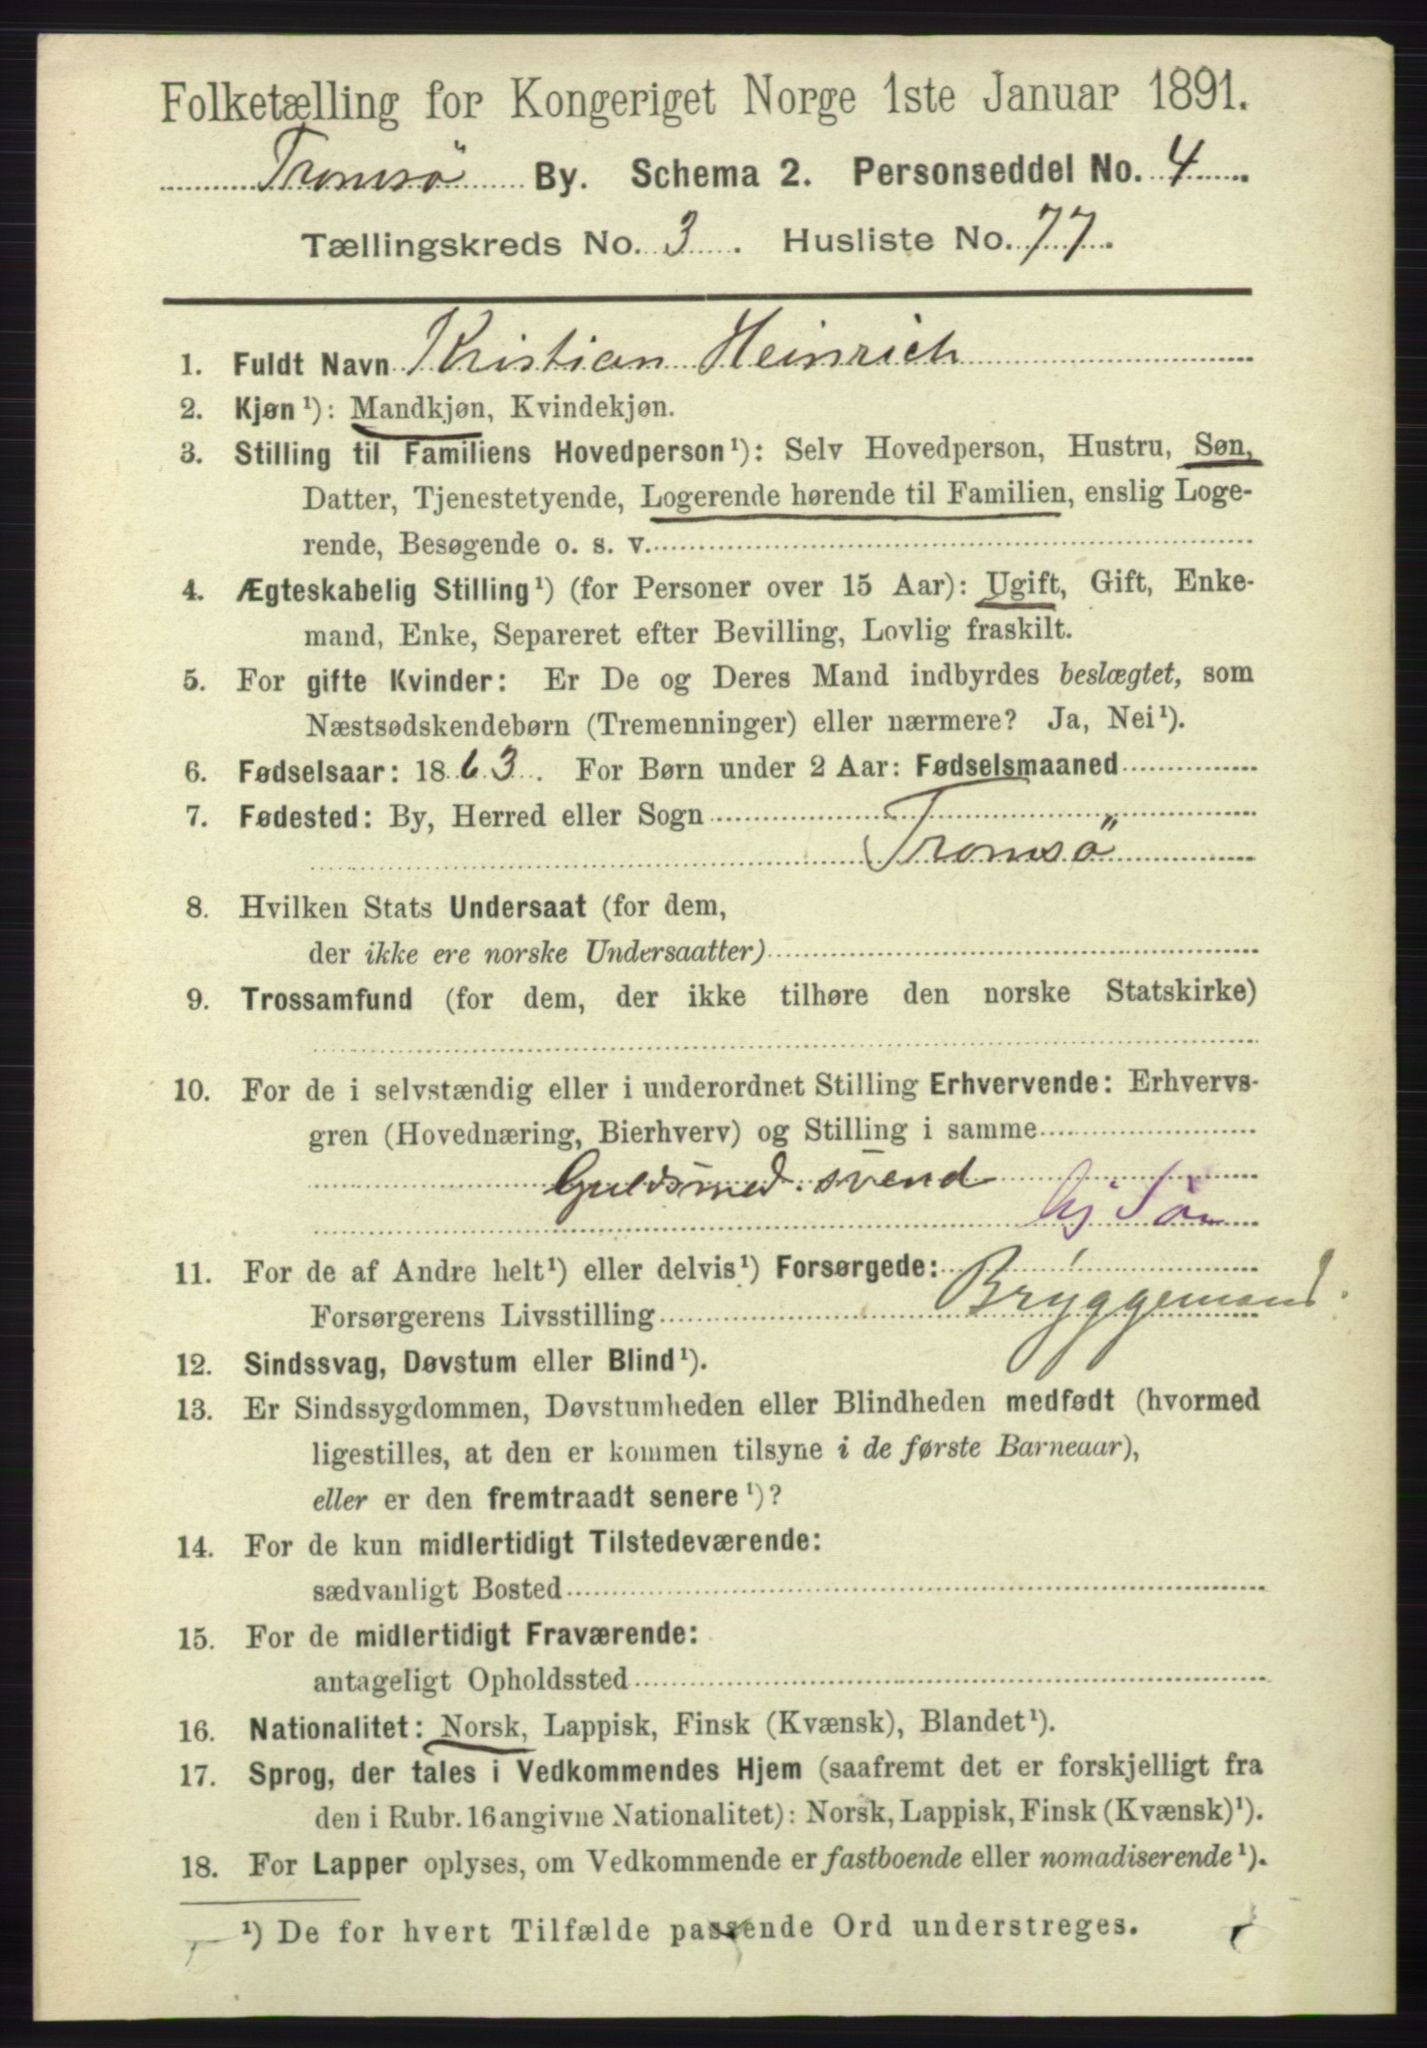 Folketælling for Kongeriget Norge 1ste Januar 1891.
Tromsö By. Schema 2. Personseddel No. 4
Tællingskreds No. 3. Husliste No. 77.
1. Fuldt Navn Kristian Heinrich
2. Kjøn¹): Mandkjøn, Kvindekjøn.
3. Stilling til Familiens Hovedperson¹): Selv Hovedperson, Hustru, Søn,
Datter, Tjenestetyende, Logerende hørende til Familien, enslig Loge-
rende, Besøgende o. s. v.
4. Ægteskabelig Stilling¹) (for Personer over 15 Aar): Ugift, Gift, Enke-
mand, Enke, Separeret efter Bevilling, Lovlig fraskilt.
5. For gifte Kvinder: Er De og Deres Mand indbyrdes beslægtet, som
Næstsødskendebørn (Tremenninger) eller nærmere? Ja, Nei¹).
6. Fødselsaar: 1863. For Børn under 2 Aar: Fødselsmaaned
7. Fødested: By, Herred eller Sogn
Tromsö
8. Hvilken Stats Undersaat (for dem,
der ikke ere norske Undersaatter)
9. Trossamfund (for dem, der ikke tilhøre den norske Statskirke)
10. For de i selvstændig eller i underordnet Stilling Erhvervende: Erhvervs-
gren (Hovednæring, Bierhverv) og Stilling i samme
Guldsmed svend
Søn
11. For de af Andre helt¹) eller delvis¹) Forsørgede:
Forsørgerens Livsstilling Bryggemand.
12. Sindssvag, Døvstum eller Blind¹).
13. Er Sindssygdommen, Døvstumheden eller Blindheden medfødt (hvormed
ligestilles, at den er kommen tilsyne i de første Barneaar),
eller er den fremtraadt senere¹)?
14. For de kun midlertidigt Tilstedeværende:
sædvanligt Bosted
15. For de midlertidigt Fraværende:
antageligt Opholdssted
16. Nationalitet: Norsk, Lappisk, Finsk (Kvænsk), Blandet¹).
17. Sprog, der tales i Vedkommendes Hjem (saafremt det er forskjelligt fra
den i Rubr. 16 angivne Nationalitet): Norsk, Lappisk, Finsk (Kvænsk)¹).
18. For Lapper oplyses, om Vedkommende er fastboende eller nomadiserende¹).
¹) De for hvert Tilfælde passende Ord understreges.